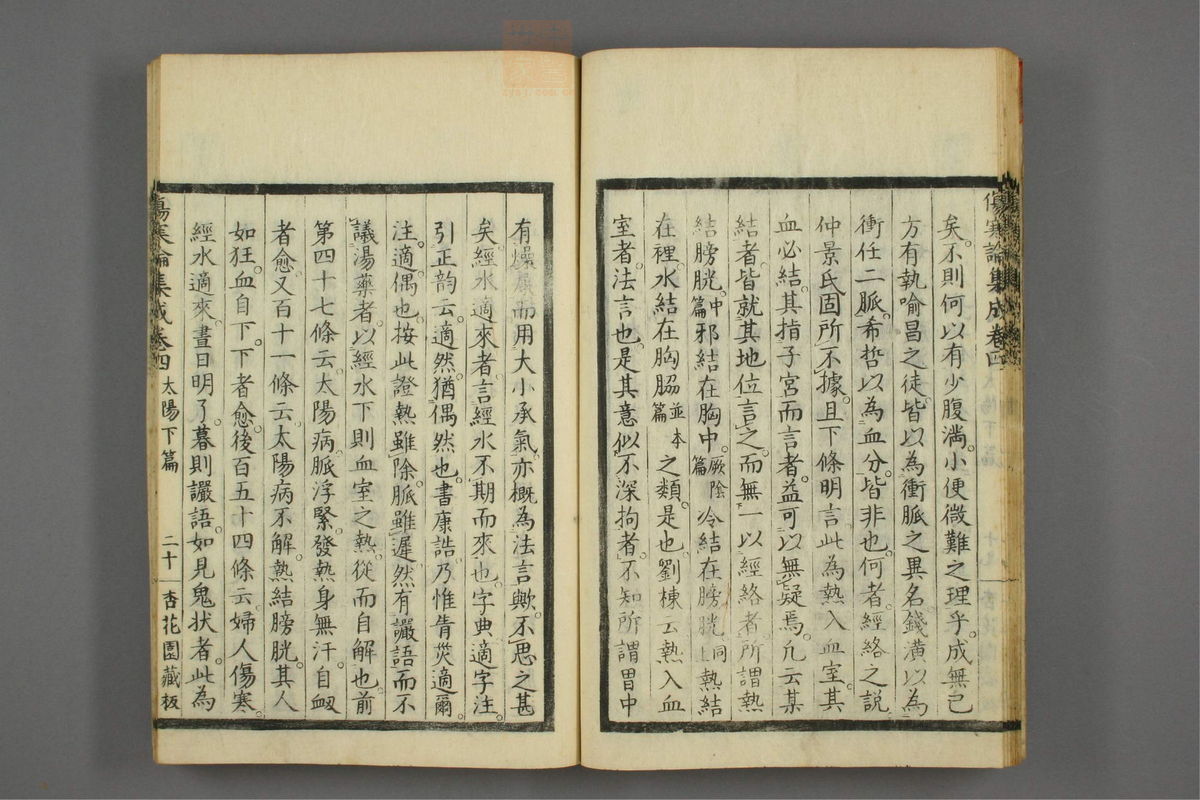 傷寒論集成卷四
矣。不則何以有少腹滿。小便微難之理乎。成無已
方有執喻昌之徒。皆以為衝脈之異名。錢潢以為
衝任二脈。希哲以為血分。皆非也。何者。經絡之説
仲景氏固所不據。且下條明言此為熱入血室。其
血必結。其指子宮而言者。益可以無疑焉。凡云某
結者。皆就其地位言之。而無一以經絡者。所謂熱
結膀胱。中篇邪結在胸中。厥陰篇冷結在膀胱。同上熱結
在裡。水結在胸脇並本篇之類。是也。劉棟云熱入血
室者。法言也。是其意似不深拘者。不知所謂胃中
有燥屎而用大小承氣。亦概為法言歟。不思之甚
矣。經水適來者。言經水不期而來也。字典適字注。
引正韵云。適然猶偶然也。書康誥。乃惟眚烖適爾
注。適偶也。按此證熱雖除脈雖遲。然有讝語而不
議湯藥者。以經水下則血室之熱。從而自解也。前
第四十七條云。太陽病。脈浮緊。發熱身無汗。自衂
者愈。又百十一條云。太陽病不解。熱結膀胱。其人
如狂。血自下。下者愈。後百五十四條云。婦人傷寒。
經水適來。晝日明了。暮則讝語。如見鬼状者。此為
傷寒論集成卷四 太陽下篇 二十 杏花園藏板